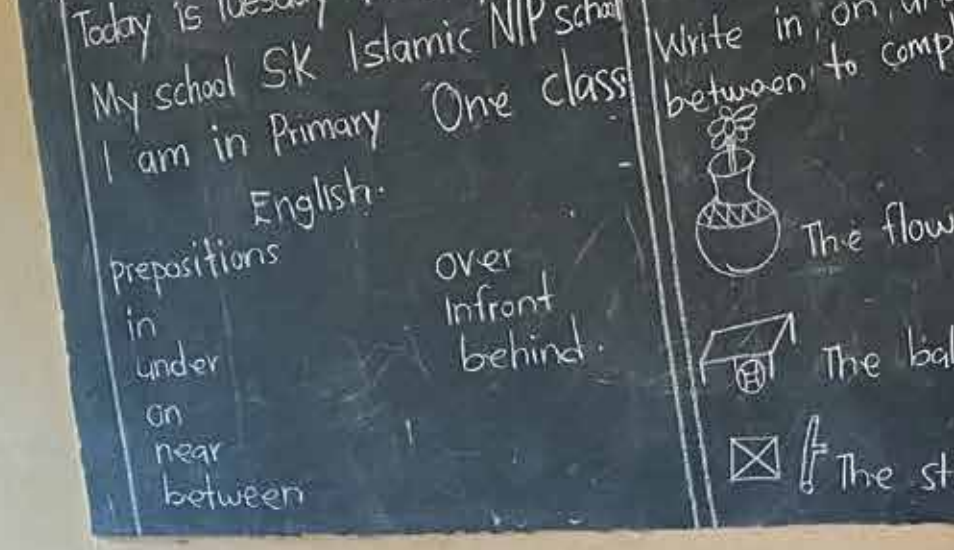 Today is Tuesday
My school S.K Islamic N/P school
I am in Primary One class
English.
prepositions
in
under
on
near
between
over
Infront
behind.
Write in, on,
between, to
The
The
The